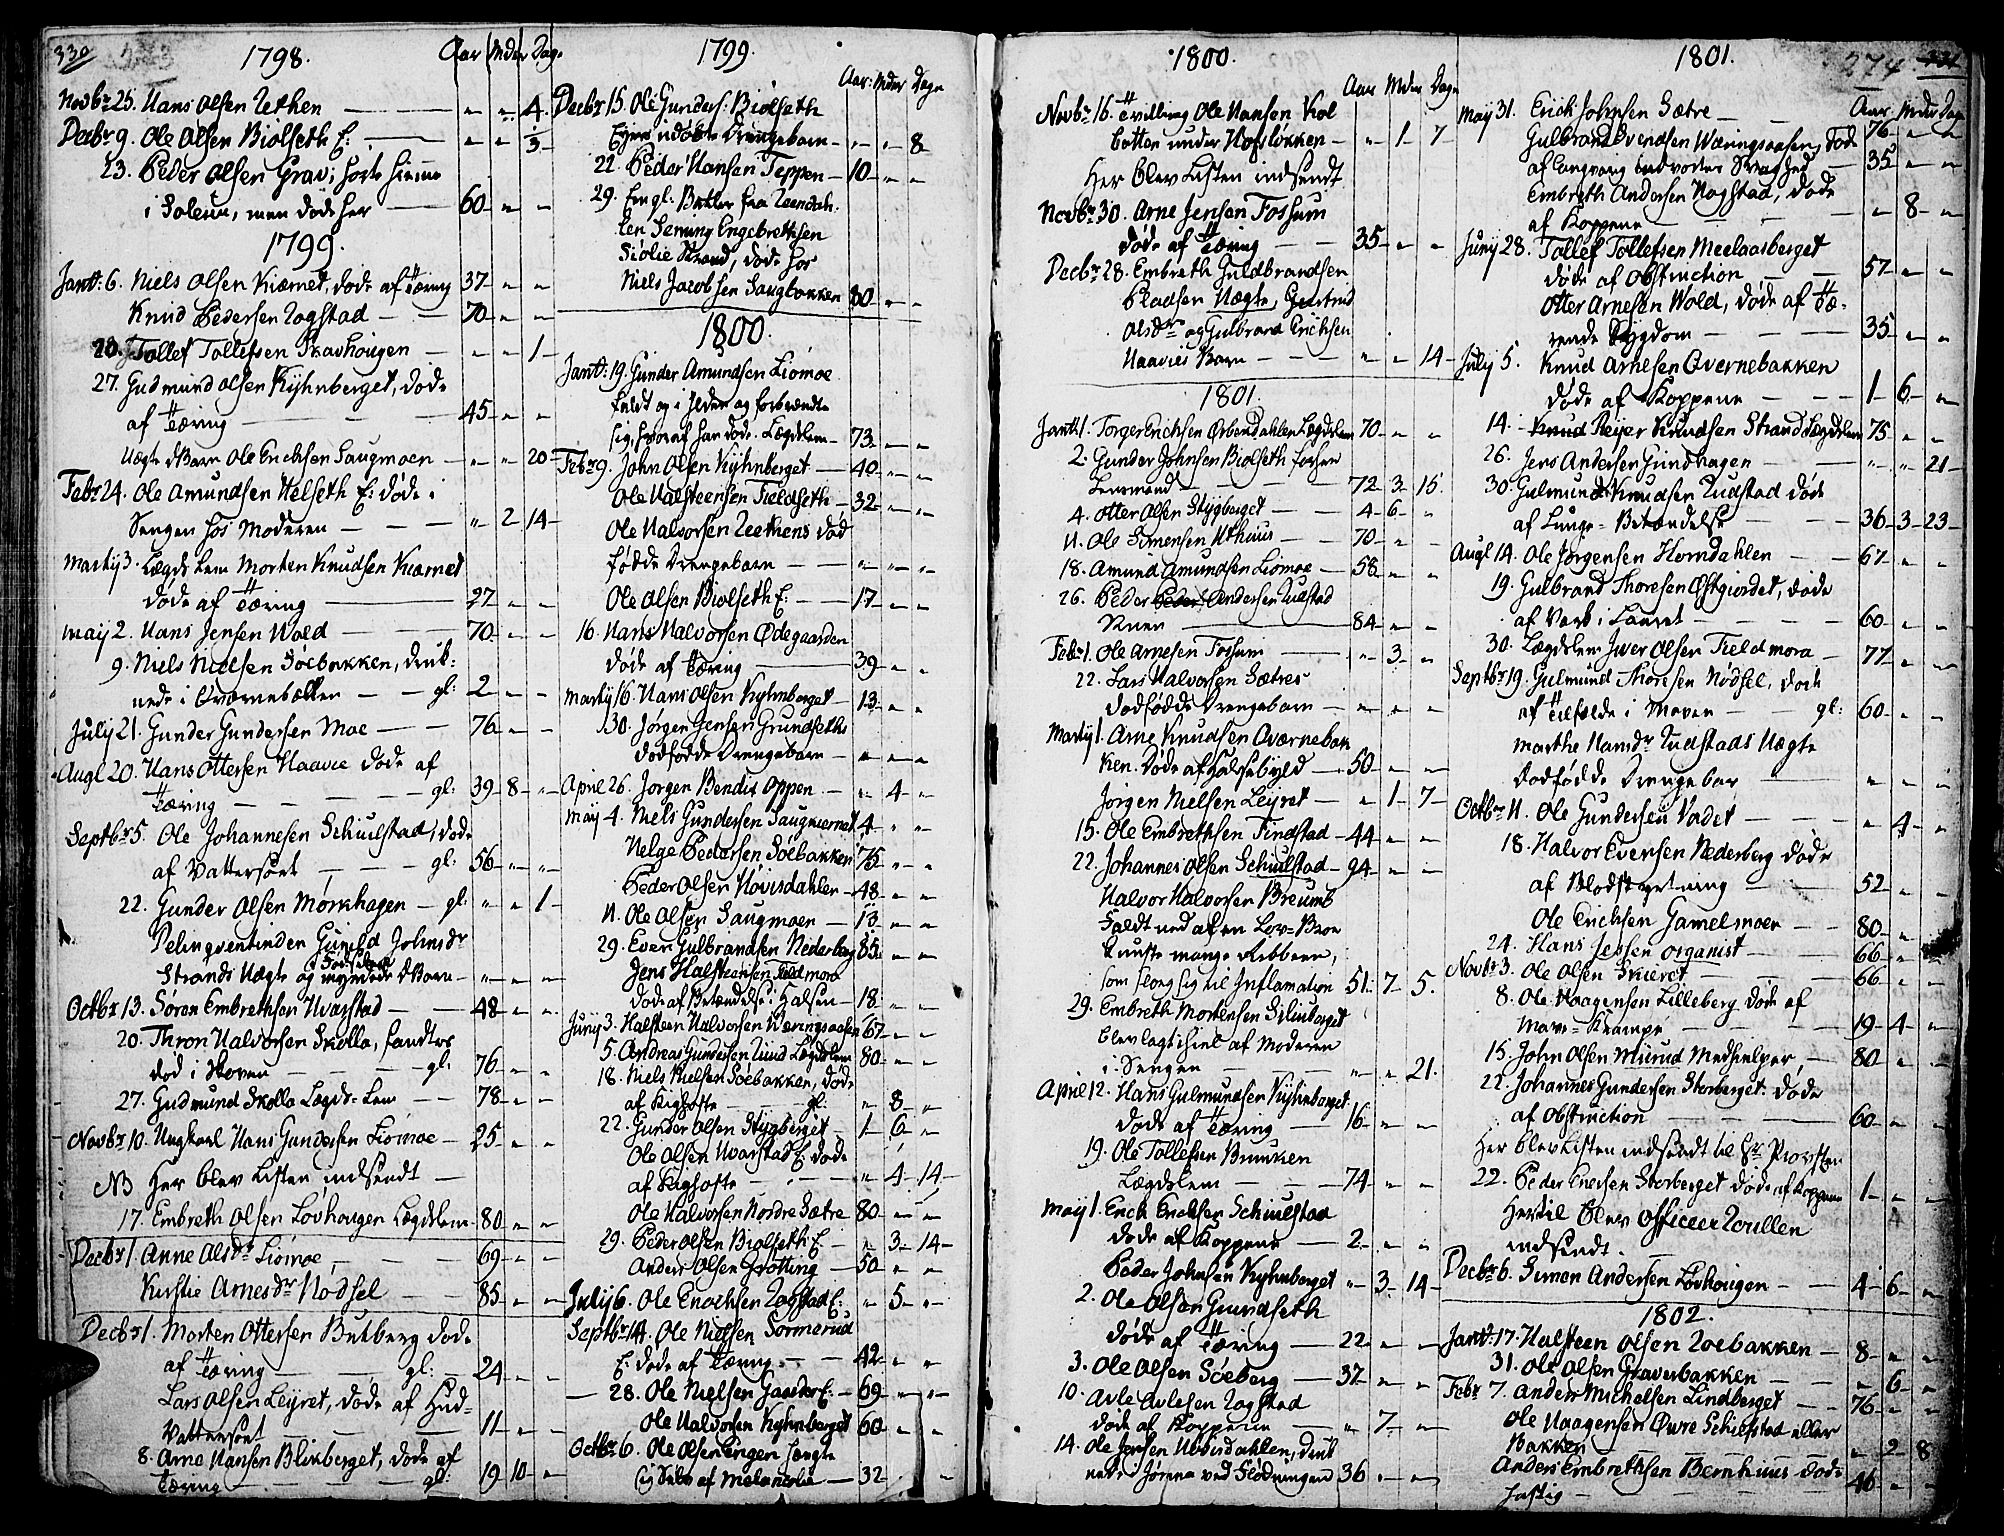 330
1798.
Aar Mdr Dage
Novbr 25. Hans Olsen Lethen — „ „ 4
Decbr 9. Ole Olsen Biolseth E. — „ „ 3
23. Peder Olsen Grav, hørte hiemme
i Soløer, men døde her — 60 „ „
1799.
Janr: 6. Niels Olsen Kiærnet, døde af Tæring 37 „ „
Knud Pedersen Rogstad — 70 „ „
20. Tollef Tollefsen Skavhougen — „ „ 1
27. Gudmund Olsen Kyhnberget, døde
af Tæring — 45 „ „
Uægte Barn Ole Erichsen Saugmoen — „ „ 20
Febr 24. Ole Amundsen Helseth E: døde i
Sengen hos Moderen — „ 2 14
Marty 3. Lægds Lem Morten Knudsen Kiærnet
døde af Tæring — 27 „ „
May 2. Hans Jensen Wold — 70 „ „
9. Niels Nielsen Søebakken, druk-
nede i Qværnebækken — gl: 2 „ „
July 21. Gunder Gundersen Moe — 76 „ „
Augl 20. Hans Ottersen Haavie døde af
Tæring — gl: 39 8 „
Septbr 5. Ole Johannesen Schiulstad, døde
af Vattersoet — gl: 56 „ „
22. Gunder Olsen Mørkhagen — gl: „ „ 1
Delinqventinden Gunild Johnsdr
Strands Uægte og i Fødselen myrdede Barn „ „ „
Octbr 13. Søren Embrethsen Hvarstad — 48 „ „
20. Thron Halvorsen Skolla, fandtes
død i Skoven — gl: 76 „ „
27. Gudmund Skolla Lægds-Lem — 78 „ „
Novbr 10. Ungkarl Hans Gundersen Liomoe — 25 „ „
NB Her blev Listen indsendt —
17. Embreth Olsen Lovhougen Lægdslem 80 „ „
Decbr 1. Anne Olsdr Liomoe — 69 „ „
Kirstie Arnesdr Nodsel — 85 „ „
Decbr 1. Morten Ottersen Bukberg døde
af Tæring — gl: 24 „ „
Lars Olsen Leyret, døde af Hud-
Vattersoet — 11 „ „
8. Arne Hansen Blikberget, døde af
Tæring — gl: 19 10 „
1799.
Aar: Mdr Dage
Decbr 15. Ole Gunders: Biolseth
Eiens udøbte Drengebarn „ „ 8
22. Peder Hansen Teppen — 10 „ „
29. Engl. Betler fra Reendah-
len Seming Engebrethsen
Siølie Strand, døde hos
Niels Jacobsen Saugbakken 80 „ „
1800.
Janr: 19. Gunder Amundsen Liomoe
faldt og i Ilden og forbrændte
sig, hvoraf han døde. Lægdslem 73 „ „
Febr 9. John Olsen Kyhnberget — 40 „ „
Ole Halsteensen Fieldseth 32 „ „
Ole Halvorsen Leethens død
fødde Drengebarn — „ „ „
Ole Olsen Biolseth E: — 17 „ „
16. Hans Halvorsen Ødegaarden
døde af Tæring — 39 „ „
Marty 16. Hans Olsen Kyhnberget 13 „ „
30. Jørgen Jensen Grundseths
dødfødde Drengebarn „ „ „
April 26. Jørgen Bendix Oppen — „ 4 „
May 4. Niels Gundersen Saugmoernet 4 „ „
Helge Pedersen Søebakken 75 „ „
Peder Olsen Hovisdahlen 48 „ „
11. Ole Olsen Saugmoen — 13 „ „
29. Even Gulbrandsen Nederberg 85 „ „
Jens Halsteensen Fieldmora
døde af Betændelse i Halsen 18 „ „
Juny 3. Halsteen Halvorsen Wæringsaasen 67 „ „
5. Andreas Gundersen Lund Lægdslem 80 „ „
18. Niels Nielsen Søebakken, døde
af Kighoste — gl: „ 8 „
22. Gunder Olsen Stygberget — 1 6 „
Ole Olsen Hvarstad E. døde
af Kighoste — „ 4 14
Ole Halvorsen Nordre Sætre 80 „ „
29. Peder Olsen Biolseth E. — „ 3 14
Anders Olsen Grøtting — 50 „ „
July 6. Ole Enochsen Rogstad E: „ 5 „
Septbr 14. Ole Nielsen Sormerud
E: døde af Tæring — 42 „ „
28. Ole Nielsen Gaarder E. 69 „ „
Ole Halvorsen Kyhnberget 60 „ „
Octbr 6. Ole Olsen Engen hængte
sig Selv af Melancolie 32 „
1800.
Aar Mdr Dage
Novbr 16. Tvilling Ole Hansen Kol
botten under Hofsløkken „ 1 7
Her blev Listen indsendt
Novbr 30. Arne Jensen Fossum
døde af Tæring — 35 „ „
Decbr 28. Embreth Guldbrandsen
Pladsen Uægte, Giertrud
Olsdr og Gulbrand Erichsen
Haavies Barn — „ „ 14
1801.
Janr 1. Torger Erichsen Ørbendahlen Lægdslem 70 „ „
2. Gunder Johnsen Biolseth forhen
Lensmand — 72 3 15
4. Otter Olsen Stygberget — 4 6 „
11. Ole Simensen Uthuus — 70 „ „
18. Amund Amundsen Liomoe — 58 „ „
26. Peder Andersen Rudstad
Ruen — 84 „ „
Febr 1. Ole Arnesen Fossum — „ 3 „
22. Lars Halvorsen Sætres
dødfødde Drengebarn — „ „ „
Marty 1. Arne Knudsen Qværnebak
ken. døde af Halsebyld — 50 „ „
Jørgen Nielsen Leyret — „ 1 7
15. Ole Embrethsen Findstad — 44 „ „
22. Johannes Olsen Schiulstad — 94 „ „
Halvor Halvorsen Breumb
Faldt ned af en Lov-Broe
knuste mange Ribbeen,
som slog sig til Inflamation 51 7 5
29. Embreth Mortensen Schiuberget
blev lagt ihiel af Moderen
i Sengen — „ „ 21
April 12. Hans Gulmundsen Kyhnberget
døde af Tæring — 16 „ „
19. Ole Tollefsen Brunken
Lægdslem — 74 „ „
May 1. Erich Erichsen Schiulstad
døde af Koppene — 2 „ „
Peder Johnsen Kyhnberget „ 3 14
2. Ole Olsen Grundseth
døde af Tæring — 22 „ „
3. Ole Olsen Søeberg — 37 „ „
10. Avle Avlesen Rogstad
døde af Koppene — „ 7 „
14. Ole Jensen Hovisdahlen, druk
nede i Jømna ved Flødningen 36 „ „
1801.
274
Aar Mdr Dage
May 31. Erich Johnsen Sætre — 76 „ „
Gulbrand Svendsen Wæringsaasen, døde
af langvarig indvortes Svaghed — 35 „ „
Embreth Andersen Nogstad, døde
af Koppene — „ 8 „
Juny 28. Tollef Tollefsen Meelaasberget
døde af Obstruction — 57 „ „
Otter Arnesen Wold, døde af Tæ-
rende Sygdom — 35 „ „
July 5. Knud Arnesen Qvernebakken
døde af Koppene — 1 6 „
14. Reyer Knudsen Strand Lægdslem 75 „ „
26. Jens Andersen Grindhagen — „ „ 21
30. Gulmund Knudsen Rudstad døde
af Lunge-Betændelse — 36 3 23
Augl 14. Ole Jørgensen Horndahlen — 67 „ „
19. Gulbrand Thoresen Østgiordet, døde
af Værk i Laaret — 60 „ „
30. Lægdslem Iver Olsen Fieldmora — 77 „ „
Septbr 19. Gulmund Thoresen Nødsel, døde
af Tilfælde i Maven — gl: 60 „ „
Marthe Hansdr Rudstads Uægte
dødfødde Drengebar — „ „ „
Octbr 11. Ole Gundersen Vadet — „ 4 „
18. Halvor Evensen Nederberg døde
af Blodstyrtning — 52 „ „
Ole Erichsen Gamelmoen — 80 „ „
24. Hans Jessen Organist — 66 „ „
Novbr 3. Ole Olsen Skieret — 66 „ „
8. Ole Haagensen Lilleberg døde af
Mave-Krampe — 19 4 „
15. John Olsen Mierud Medhielper, — 80 „ „
22. Johannes Gundersen Storberget. døde
af Obstruction — 60 „ „
Her blev Listen indsendt til Hr Provsten
22. Peder Enersen Storberget døde af Koppene 1 „ „
Hertil blev Officeer Rullen
indsendt.
Decbr 6. Simen Andersen Lovhougen — 4 6 „
1802.
Janr: 17. Halsteen Olsen Moebakken — 8 „ „
31. Ole Olsen Graverbakken — „ 6 „
Febr 7. Anders Michelsen Lindberget — 76 „ „
Ole Haagensen Øvre Schiefstad eller
Bakken — „ 2 8
Anders Embrethsen Bernhuus døde
hastig — 46 „ „